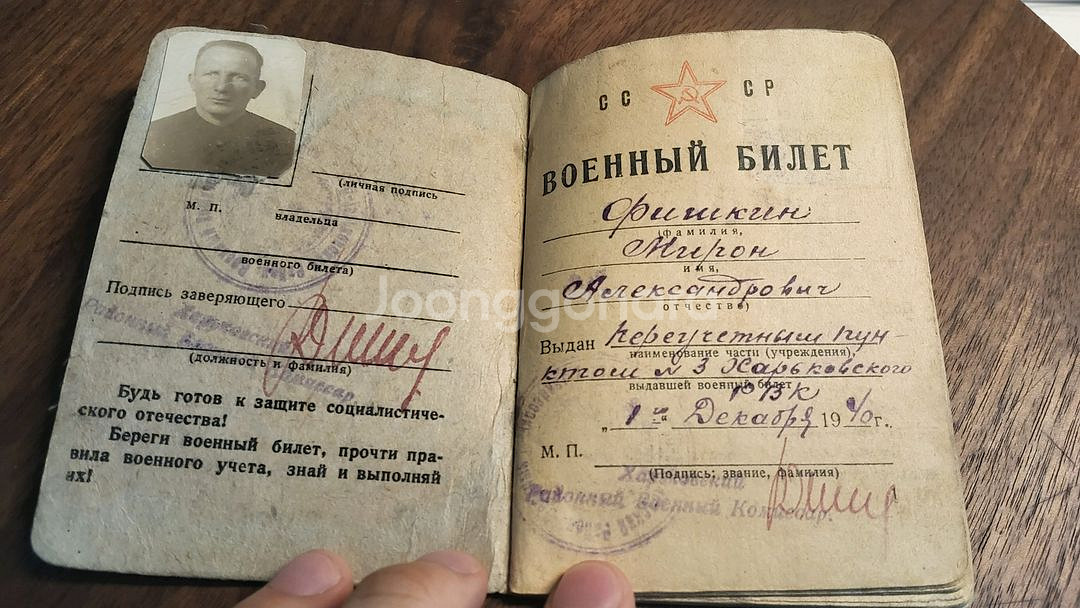 (личная подпись
М. П.
владельца
военного билета)
Подпись заверяющего
Харьковский
Районный Военный Комиссар
(должность и фамилия)
Будь готов к защите социалистиче-
ского отечества!
Береги военный билет, прочти пра-
вила военного учета, знай и выполняй
их!
СС СР
ВОЕННЫЙ БИЛЕТ
Фишкин
(фамилия,
Мирон
имя,
Александрович
отчество)
Выдан Переучетным пун
наименование части (учреждения),
ктом № 3 Харьковского
выдавшей военный билет
РВК
„1 го“ Декабря 1940 г.
М. П.
(Подпись, звание, фамилия)
Харьковский
Районный Военный Комиссар.
Joonggonara